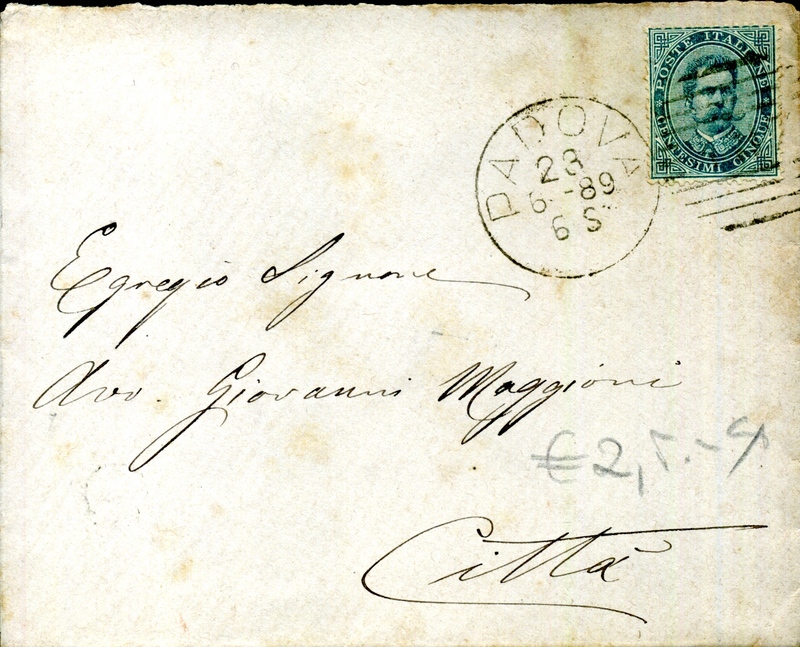 POSTE ITALIANE
CENTESIMI CINQUE
PADOVA
28
6 - 89
6 S
Egregio Signore
Avv. Giovanni Maggioni
€2,5.-
Città